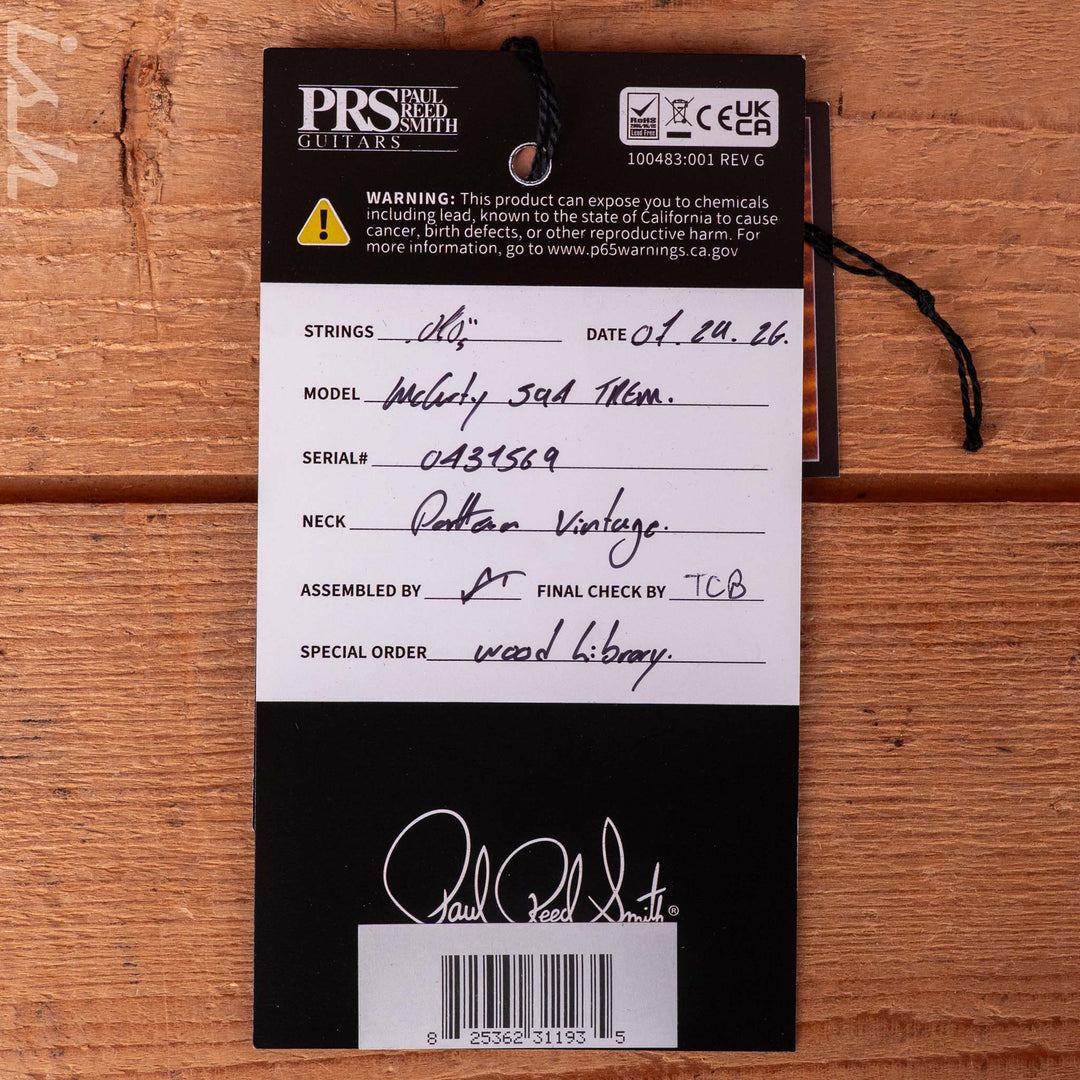 ish
PRS PAUL REED SMITH
GUITARS
RoHS
Lead Free
CE UK CA
100483:001 REV G
WARNING: This product can expose you to chemicals
including lead, known to the state of California to cause
cancer, birth defects, or other reproductive harm. For
more information, go to www.p65warnings.ca.gov
STRINGS DATE 01.24.26.
MODEL McCarty 594 TREM.
SERIAL# 0431569
NECK Pattern Vintage.
ASSEMBLED BY FINAL CHECK BY TCB
SPECIAL ORDER Wood Library.
Paul Reed Smith ®
8 25362 31193 5